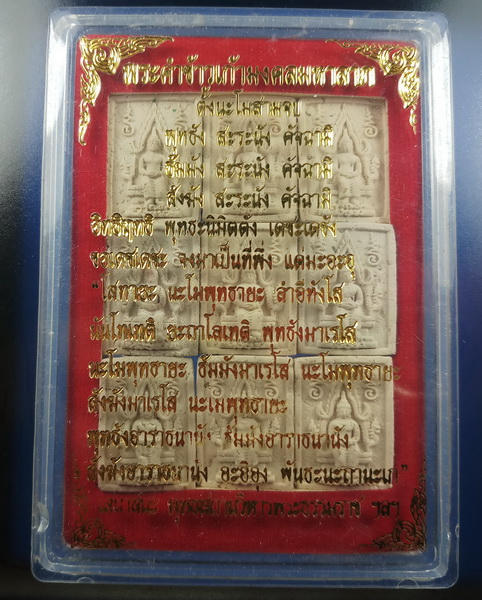 พระคำข้าวเก้ามงคลมหาลาภ
ตั้งนะโมสามจบ
พุทธัง สะระนัง คัจฉามิ
ธัมมัง สะระนัง คัจฉามิ
สังฆัง สะระนัง คัจฉามิ
อิทธิฤทธิ พุทธะนิมิตตัง เดชะเดชัง
ขอเดชเดชะ จงมาเป็นที่พึ่ง แด่มะอะอุ
"โสทายะ นะโมพุทธายะ ลำอีทังโส
นะโมพุทธายะ ธัมมังมาเรโส นะโมพุทธายะ
สังฆังมาเรโส นะโมพุทธายะ
พุทธังอาราธนานัง ธัมมังอาราธนานัง
สังฆังอาราธนานัง